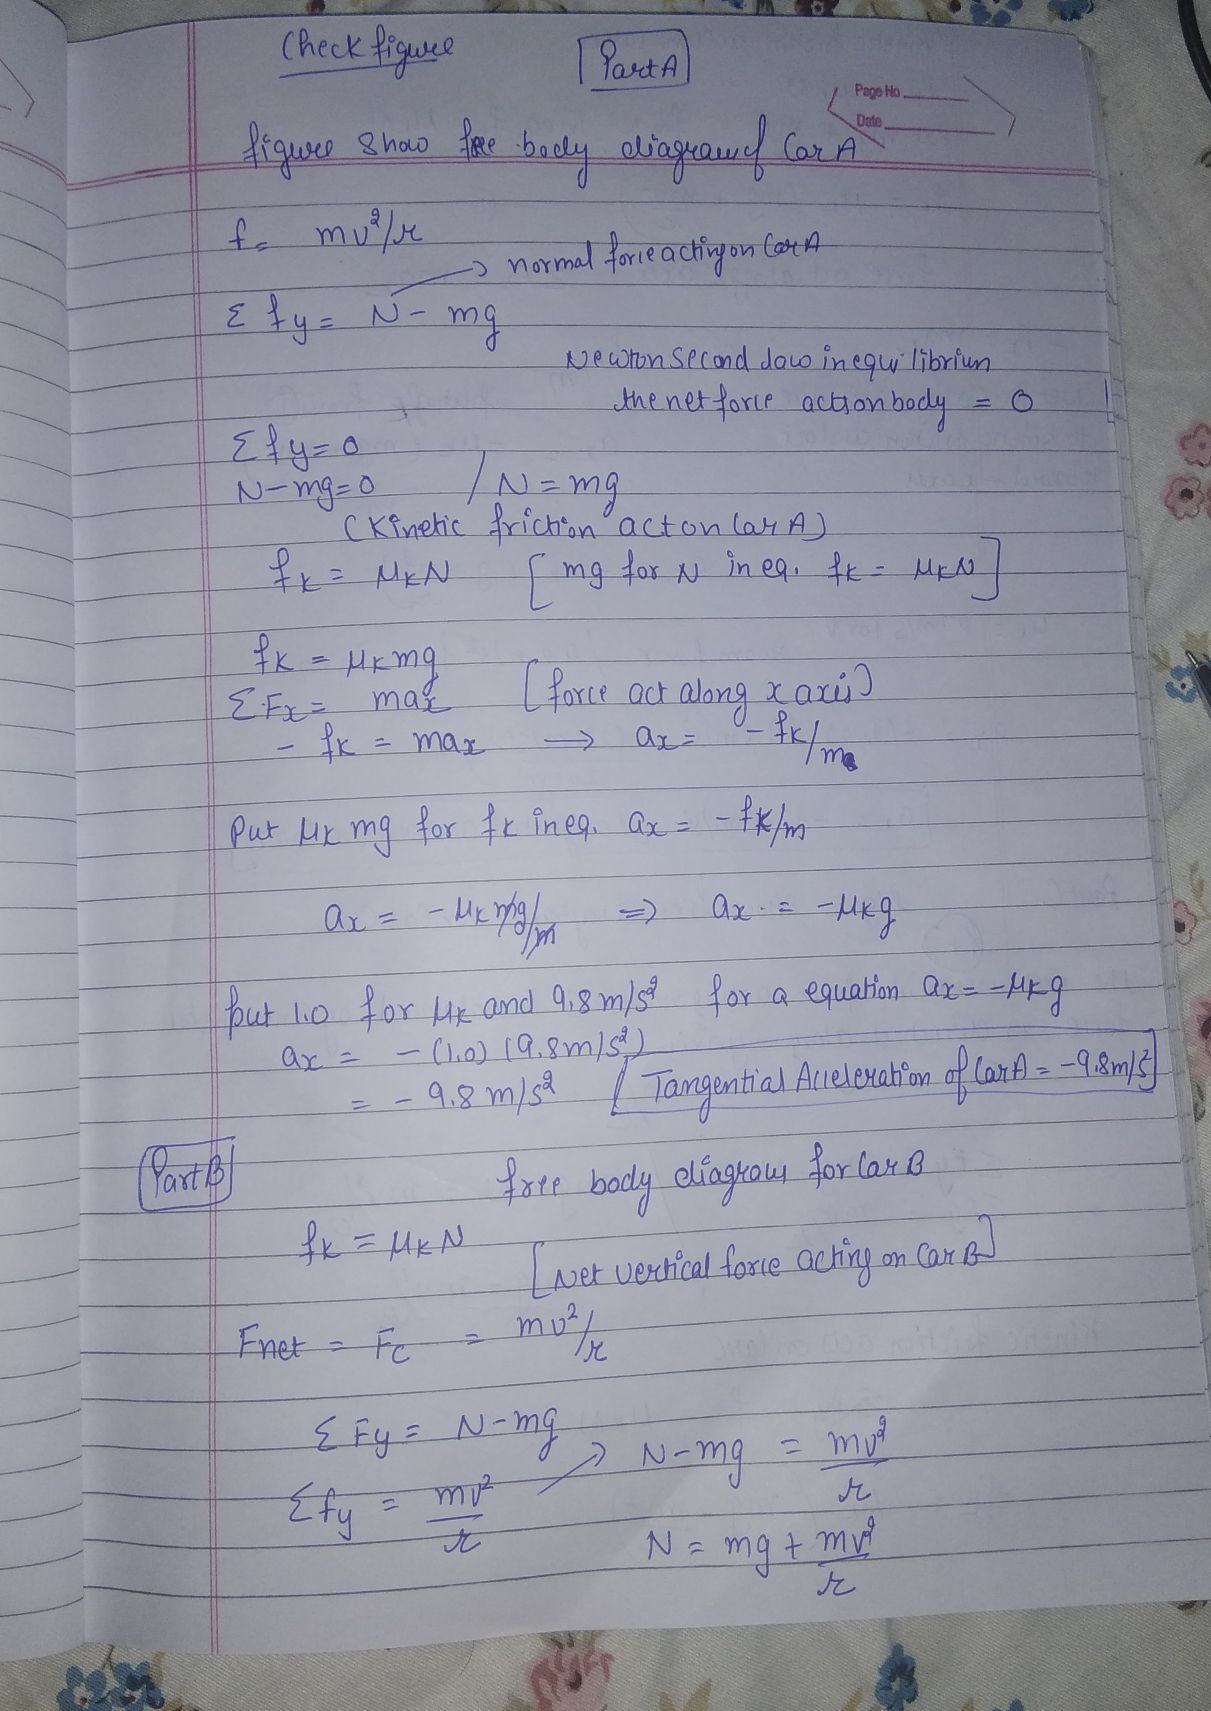 Check figure
Part A
Page No
Date
figure Show free body diagram of Car A
f = mv²/r
→ normal force acting on Car A
Σ fy = N - mg
Newton Second law in equilibriun
the net force act on body = 0
Σ fy = 0
N - mg = 0 / N = mg
(Kinetic friction act on Car A)
fk = μkN [mg for N in eq. fk = μkN]
fk = μkmg
ΣFx = max [force act along x axis]
- fk = max → ax = -fk/m
Put μk mg for fk in eq. ax = -fk/m
ax = -μk mg/m ⇒ ax = -μkg
Put 1.0 for μk and 9.8 m/s² for a equation ax = -μkg
ax = -(1.0) (9.8 m/s²)
= -9.8 m/s² [Tangential Acceleration of Car A = -9.8 m/s²]
Part B
free body diagram for Car B
fk = μkN
[Net vertical force acting on Car B]
Fnet = Fc = mv²/r
Σ Fy = N - mg
Σ fy = mv²/r → N - mg = mv²/r
N = mg + mv²/r